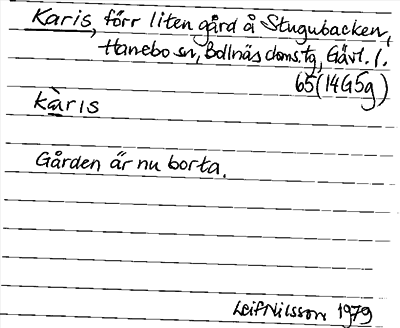 Karis, förr liten gård å Stugubacken,
Hanebo sn, Bollnäs doms.tg, Gävl. l.
65(14G5g)
kàris
Gården är nu borta.
Leif Nilsson 1979